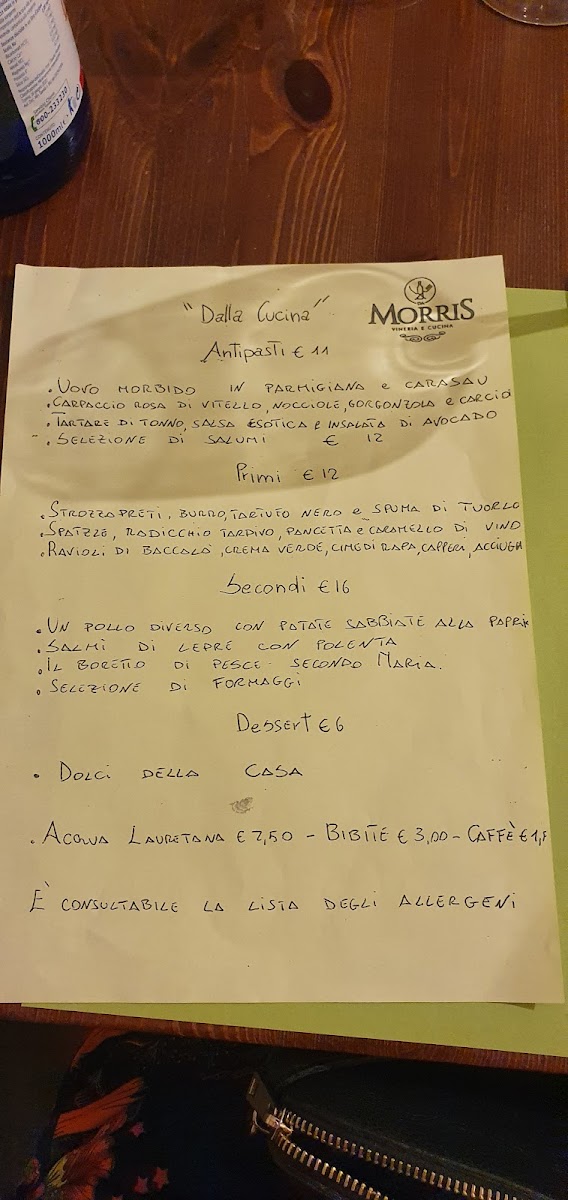 800-233230
1000ml e
DA
MORRIS
VINERIA E CUCINA
"Dalla Cucina"
Antipasti € 11
. UOVO MORBIDO IN PARMIGIANA e CARASAU
. CARPACCIO ROSA DI VITELLO, NOCCIOLE, GORGONZOLA e CARCIO
. TARTARE DI TONNO, SALSA ESOTICA e INSALATA DI AVOCADO
. SELEZIONE DI SALUMI € 12
Primi € 12
. STROZZAPRETI, BURRO, TARTUFO NERO e SPUMA DI TUORLO
. SPATZLE, RADICCHIO TARDIVO, PANCETTA e CARAMELLO DI VINO
. RAVIOLI DI BACCALA', CREMA VERDE, CIME DI RAPA, CAPPERI, ACCIUGH
Secondi € 16
. UN POLLO DIVERSO CON PATATE SABBIATE ALLA PAPRIK
. SALMÌ DI LEPRE CON POLENTA
. IL BORETTO DI PESCE SECONDO MARIA.
. SELEZIONE DI FORMAGGI
Dessert € 6
. DOLCI DELLA CASA
. ACQUA LAURETANA € 2,50 - BIBITE € 3,00 - CAFFÈ € 1,5
È CONSULTABILE LA LISTA DEGLI ALLERGENI